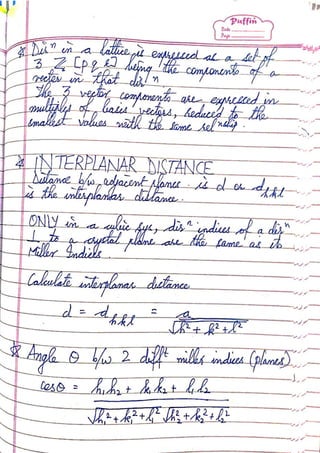 Puffin
Date
Page
Dirⁿ in a lattice is expressed as a set of
3 Z [p q r] being the components of a
vector in that dirⁿ
The 3 vector components are expressed in
multiples of basis vectors, reduced to the
smallest values with the same relⁿship.
INTERPLANAR DISTANCE
Distance b/w adjacent planes is d or d_hkl
is the interplanar distance.
ONLY in a cubic sys, dirⁿ indices of a dirⁿ
⊥ to a crystal plane are the same as its
Miller Indices
Calculate interplanar distance
d = d_hkl = a / √h² + k² + l²
Angle θ b/w 2 diffᵗ miller indices (planes)
cosθ = h₁h₂ + k₁k₂ + l₁l₂
√h₁² + k₁² + l₁² √h₂² + k₂² + l₂²